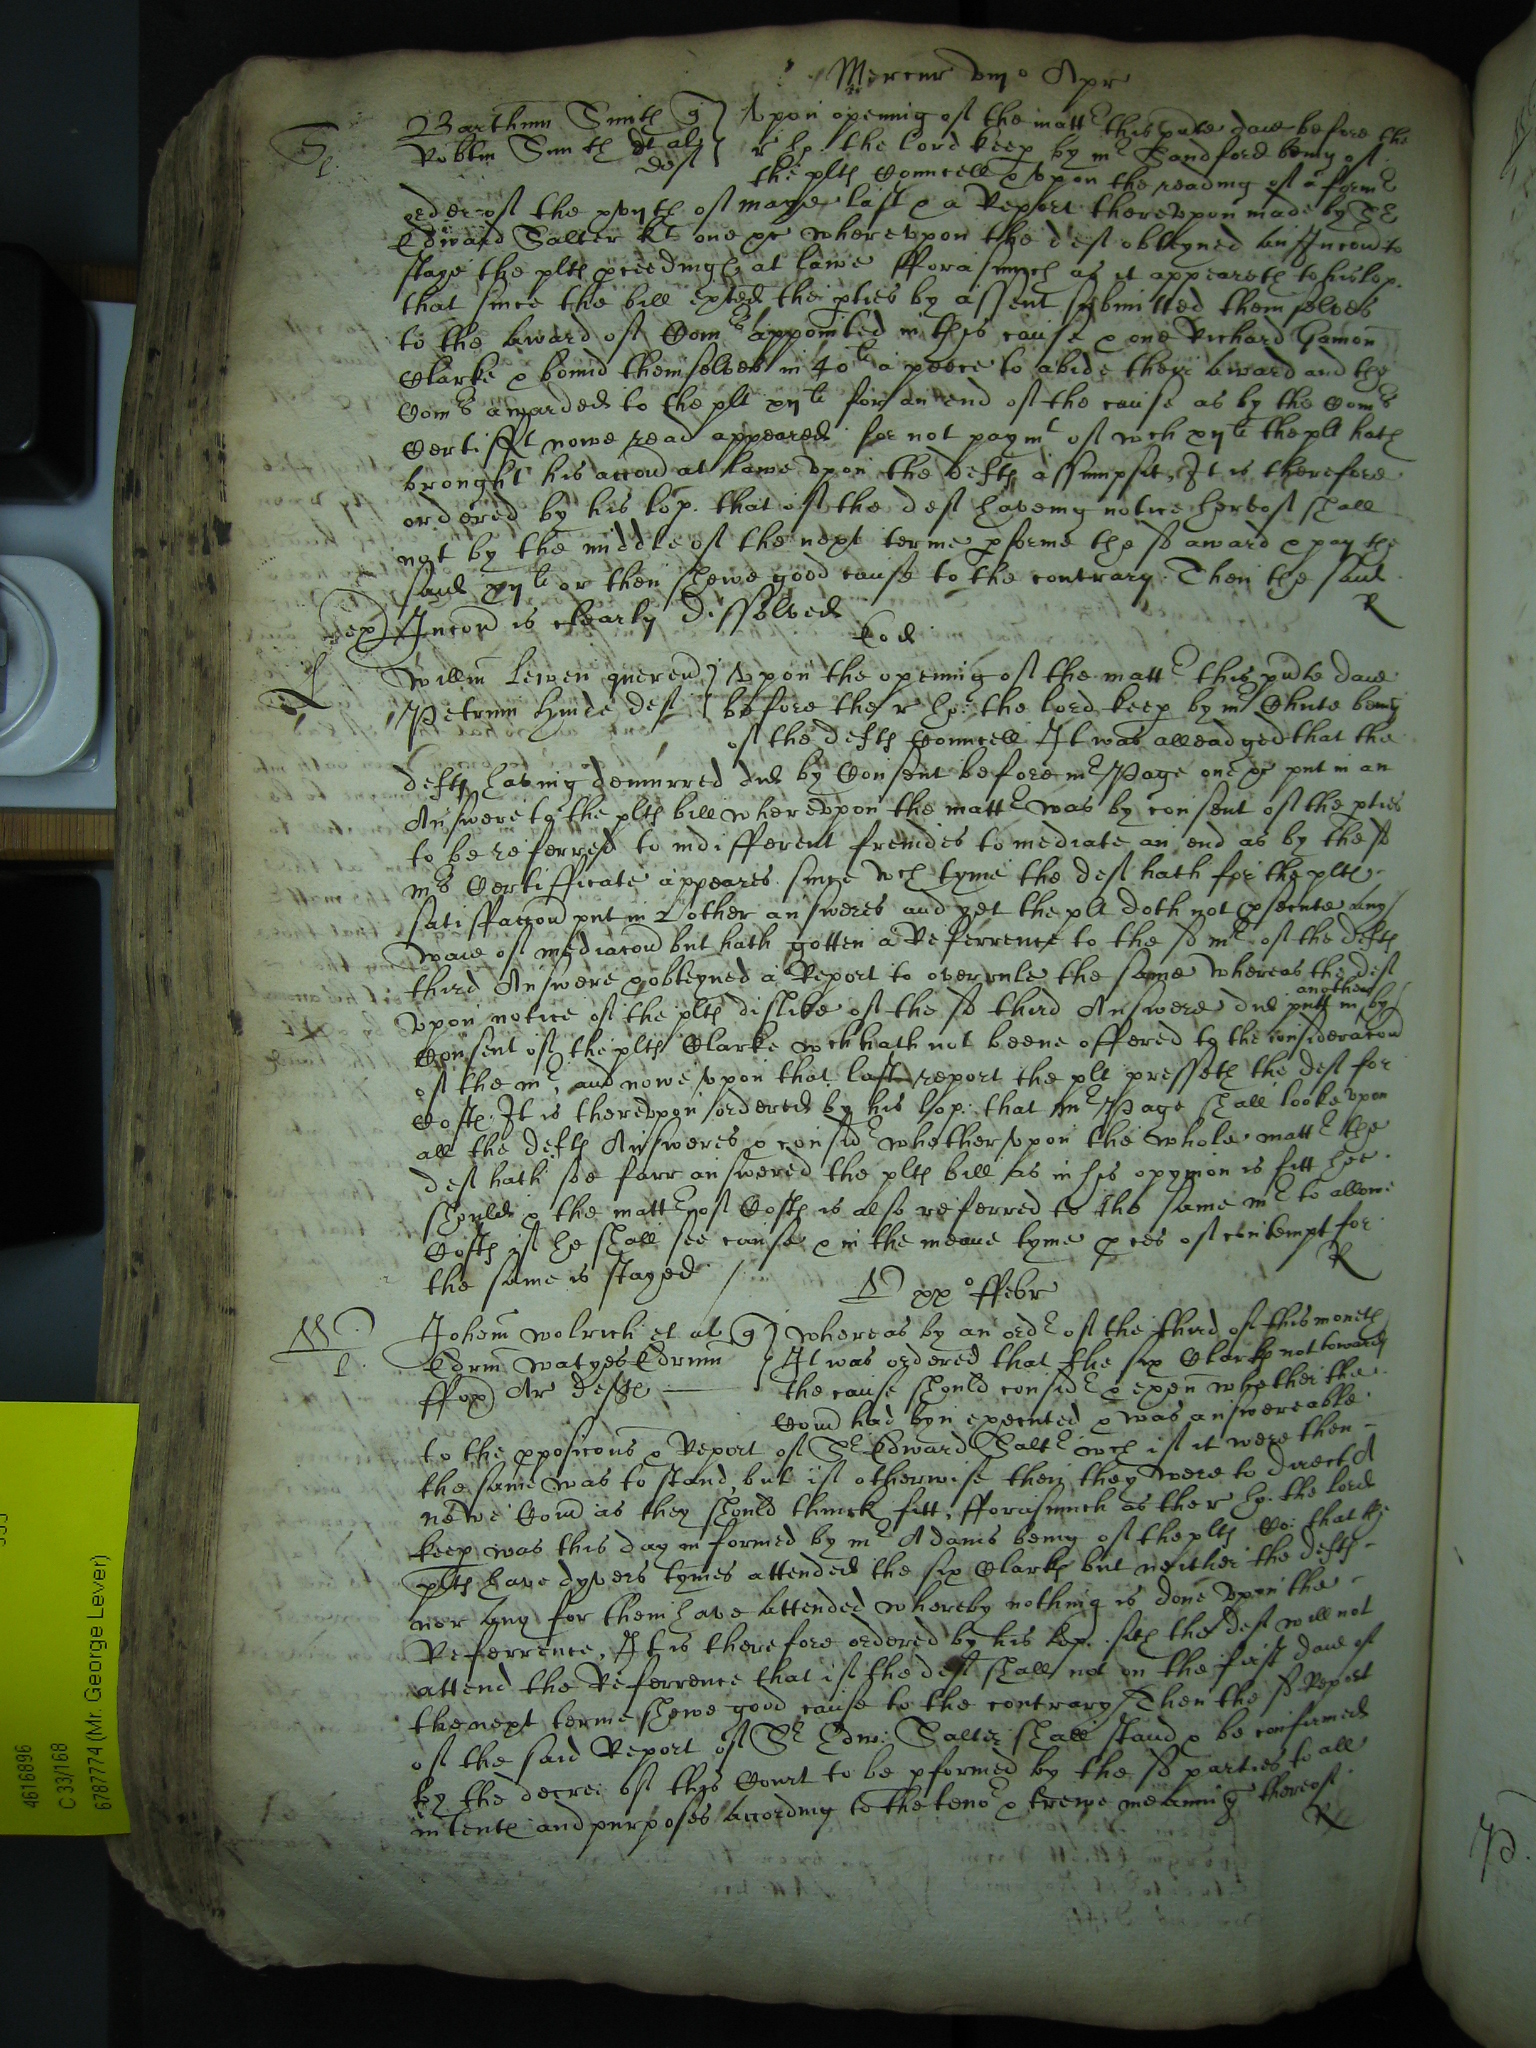 Mercur viijo Apr
Barthmm Smith q Upon opening of the mattr this pnte daie before the
Robtm Smith et al r ho: the lord keep by mr Sandford being of
deft the plts Councell & upon the reading of a former
order of the xviijth of maye last & a Report thereupon made by Sr
Edward Salter kt one &c whereupon the deft obteyned an Inconn to
staye the plts pceedings at lawe fforasmuch as it appeareth to his lop.
that since the bill exhted the pties by assent submitted themselves
to the award of Comrs appointed in this cause & one Richard Gamon
Clarke & bound themselves in 40li a peece to abide their award and the
Comrs awarded to the plt xijli for an end of the cause as by the Comrs
Certifft nowe read appeared for not paymt of wch xijli the plt hath
brought his accon at lawe upon the defts assumpsit, It is therefore
ordered by his lop. that if the deft haveing notice hereof shall
not by the middle of the next terme pforme the sd award & pay the
said xijli or then shewe good cause to the contrary. Then the said
Inconn is clearly dissolved R
Eod
Willm Lewen querend Upon the opening of the mattr this pnte daie
Petrum Hinde deft before the r ho: the lord keep by mr Chute being
of the defts Councell It was alleadged that the
defts having demurred did by Consent before mr Page one &c put in an
Answere to the plts bill whereupon the mattr was by consent of the pties
to be referred to indifferent freindes to mediate an end as by the sd
mrs Certifficate appeares since wch tyme the deft hath for the plts
satisffaccon put in 2 other answeres and yet the plt doth not psecute any
waie of mediacon but hath gotten a Referrence to the sd mr of the defts
third Answere & obteyned a Report to overrule the same whereas the deft
another
upon notice of the plts dislike of the sd third Answere did putt in by
Consent of the plts Clarke wch hath not beene offered to the consideracon
of the mr, and nowe upon that last report the plt presseth the deft for
Costs: It is thereupon ordered by his lop: that mr Page shall looke upon
all the defts Answeres & considr whether upon the whole mattr the
deft hath soe farr answered the plts bill as in his opynion is fitt hee
should & the mattr of Costs is also referred to the same mr to allowe
Costs if he shall see cause & in the meane tyme pces of contempt for
the same is stayed R
D xxo ffebr
Johem Wolrich et al q Whereas by an ordr of the third of this moneth
Edrm Watyes Edrum It was ordered that the six Clarks not towards
ffox Ar defts the cause should considr & exen whether the
Comn had byn executed & was answereable
to the pposicons & Report of Sr Edward Saltr wch if it were then
the same was to stand, but if otherwise then they were to direct A
newe Comn as they should thinck fitt, fforasmuch as the r ho. the lord
keep was this day informed by mr Adams being of the plts Co: that the
plts have dyvers tymes attended the six Clarks but neither the defts
nor any for them have attended whereby nothing is done upon the
Referrence, It is therefore ordered by his lop. sith the deft will not
attend the Referrence that if the deft shall not on the first daie of
the next terme shewe good cause to the contrary Then the sd Report
of the said Report of Sr Edw: Salter shall stand & be confirmed
by the decree of this Court to be pformed by the sd parties to all
intents and purposes according to the teno & trewe meaning thereof
R
4616896
C 33/168
6787774 (Mr. George Lever)